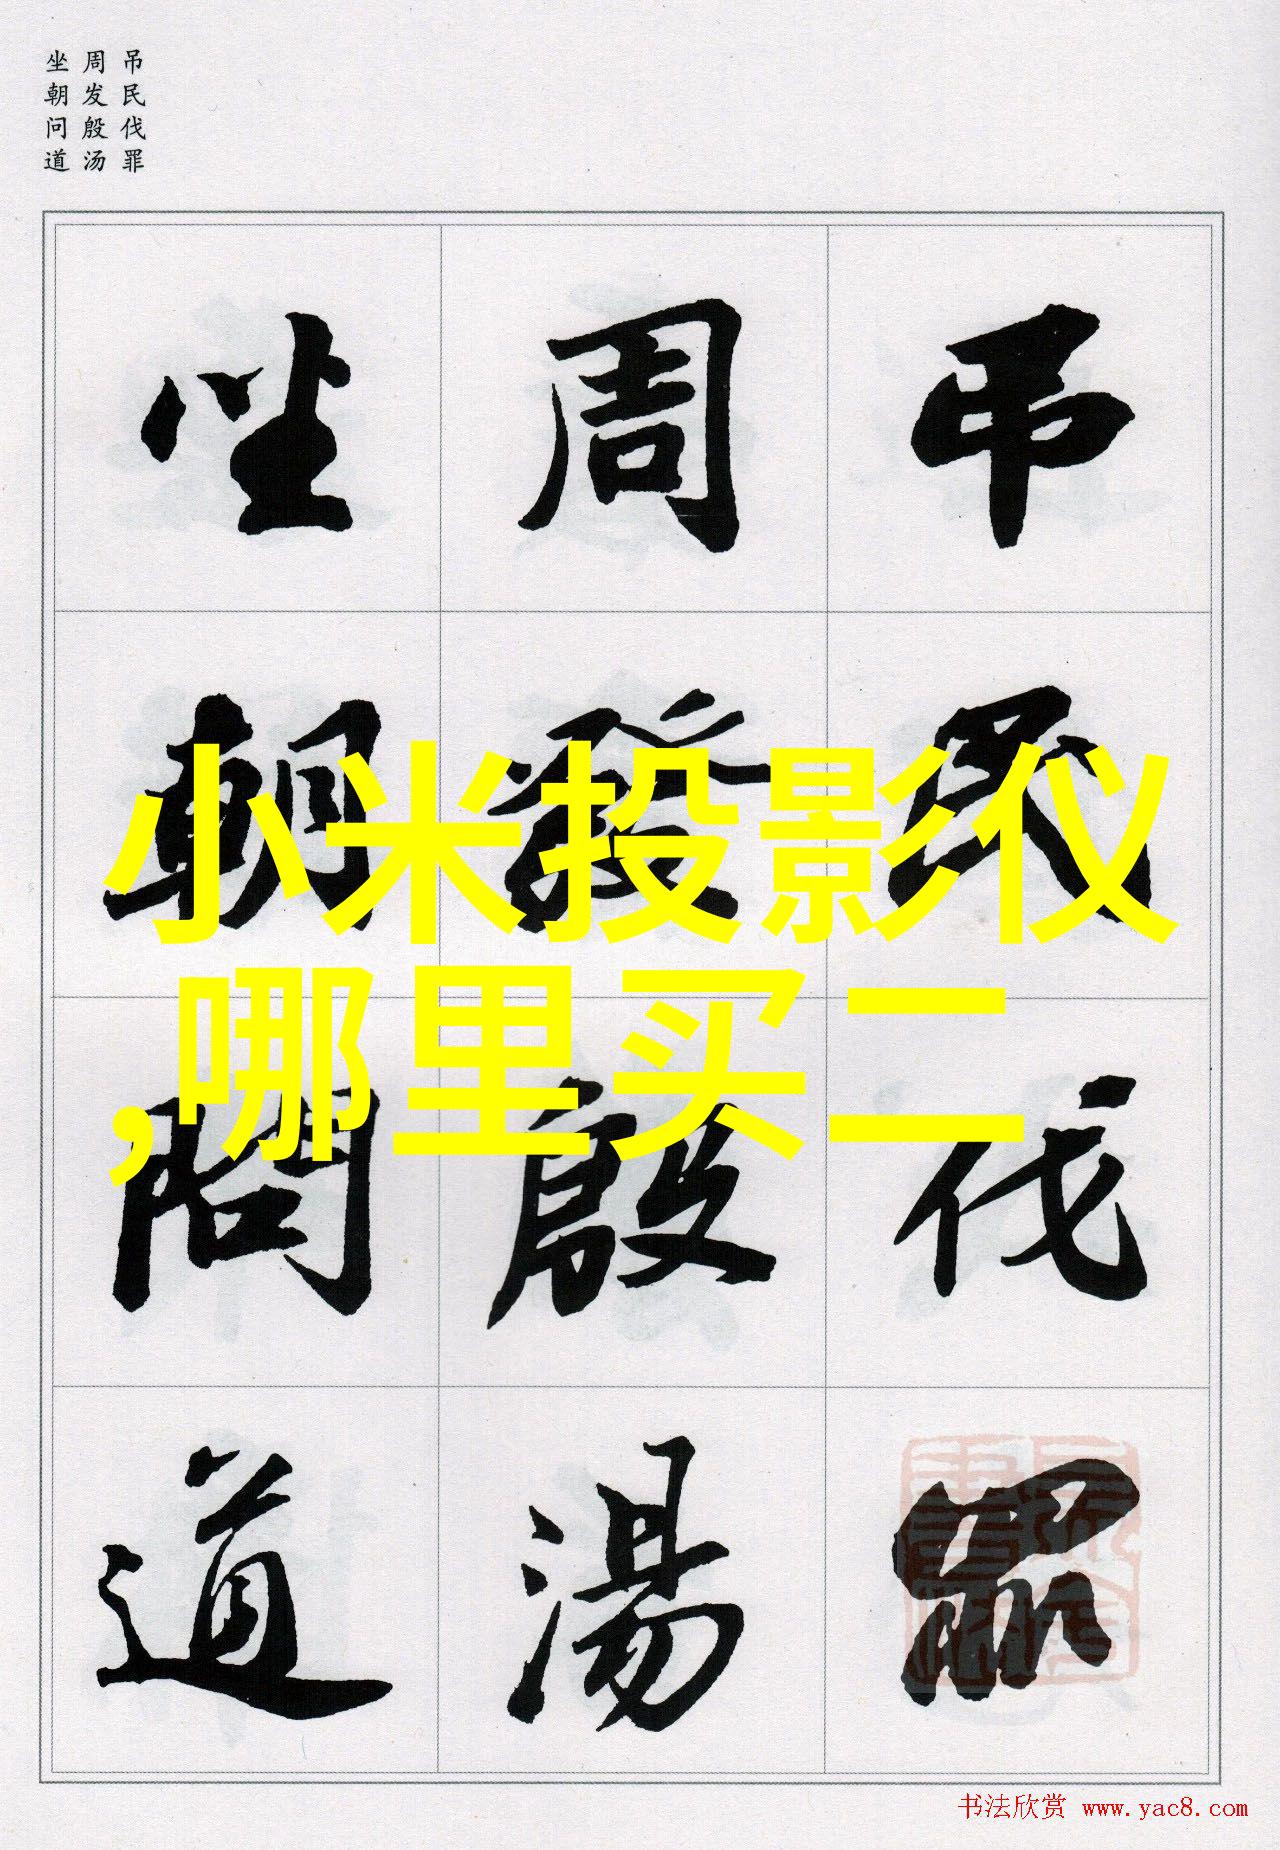 吊民伐罪
周发殷汤
坐朝问道
吊民伐罪
周發殷湯
坐朝問道
小米投影仪
,哪里买二
书法欣赏 www.yac8.com